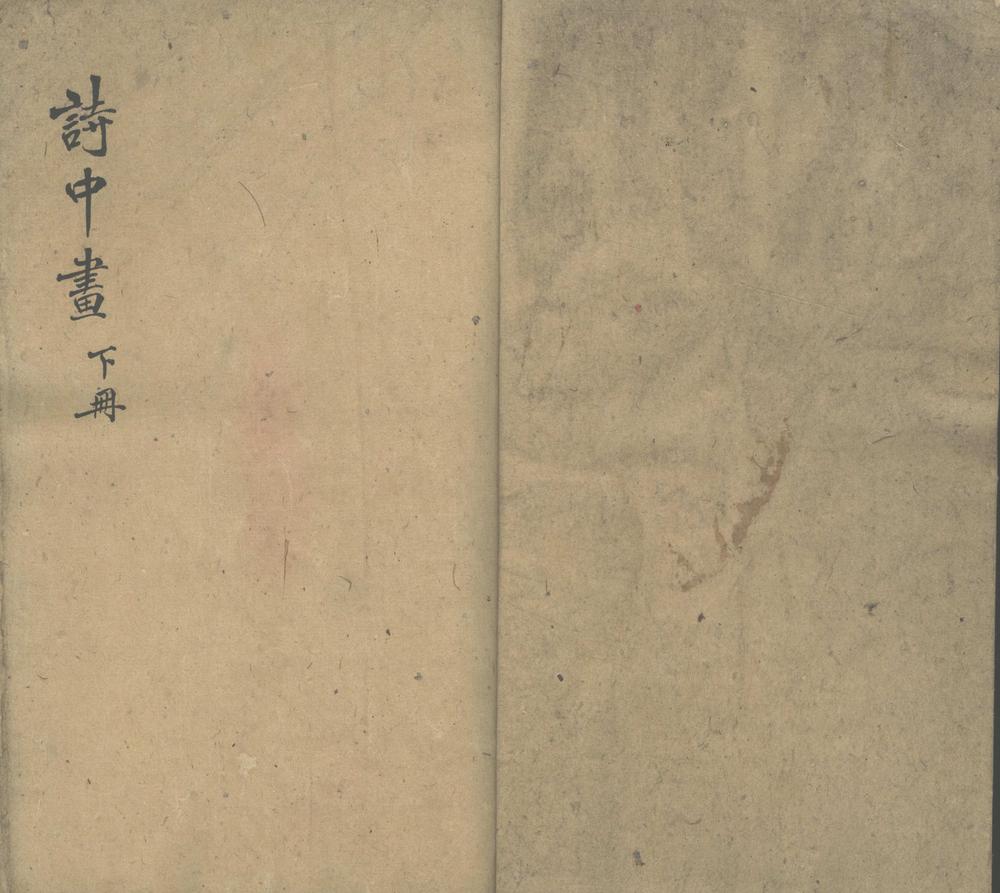 詩中畫 下冊